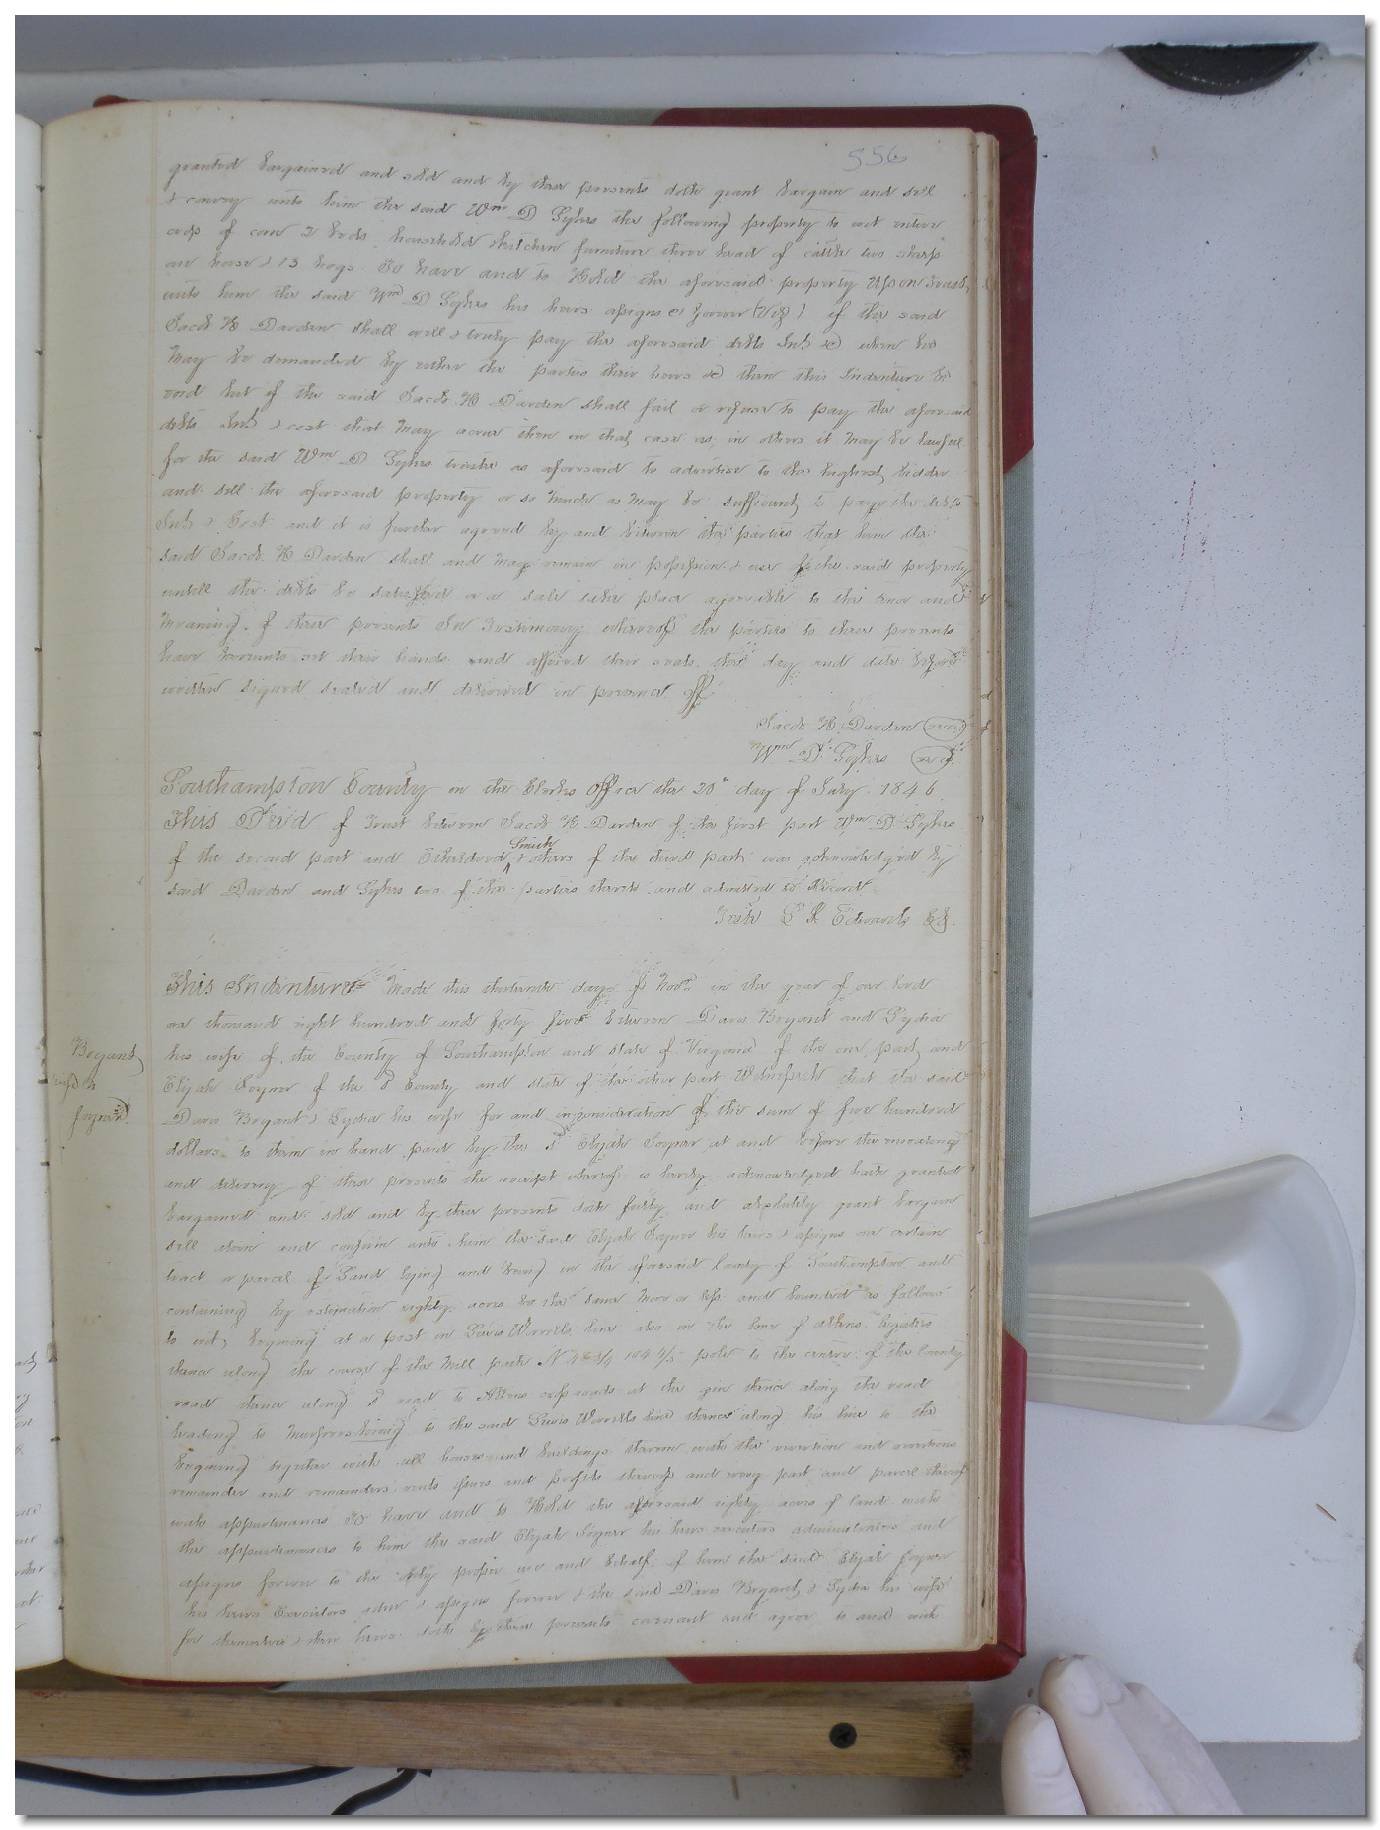 556
granted bargained and sold and by these presents doth grant bargain and sell
& convey unto him the said Wm D Sykes the following property to wit entire
crop of corn 2 beds household & kitchen furniture three head of cattle two sheep
one horse & 13 hogs To have and to Hold the aforesaid property Upon Trust
unto him the said Wm D Sykes his heirs assigns forever (Viz) if the said
Jacob H Darden shall well & truly pay the aforesaid debts Int &c when he
May be demanded by either the parties their heirs &c then this Indenture be
void but if the said Jacob H Darden shall fail or refuse to pay the aforesaid
debts Int & cost that May accrue then in that case as in others it May be lawful
for the said Wm D Sykes trustee as aforesaid to advertise to the highest bidder
and sell the aforesaid property or so Much as May be sufficient to pay the debts
Int & Cost and it is further agreed by and between the parties that him the
said Jacob H Darden shall and May remain in possession & use of the said property
untill the debts be satisfied or a sale take place agreeable to the tenor and
Meaning of these presents In Testimony whereof the parties to these presents
have hereunto set their hands and affixed their seals the day and date before
written signed sealed and delivered in presence off
Jacob H Darden (seal)
Wm D Sykes (seal)
Southampton County in the Clerks Office the 20th day of Jany 1846
This Deed of Trust between Jacob H Darden of the first part Wm D Sykes
of the second part and Etheldred Smith & others of the third part was acknowledged by
said Darden and Sykes two of the parties thereto and admitted to Record
Teste L R Edwards Clk
This Indenture Made this thirteenth day of Novr in the year of our lord
one thousand eight hundred and forty five between Davis Bryant and Lydia
Bryant
his wife of the County of Southampton and state of Virginia of the one part and
wife &
Elijah Joyner of the sd County and state of the other part Witnesseth that the said
Joyner
Davis Bryant & Lydia his wife for and in consideration of the sum of five hundred
dollars to them in hand paid by the sd Elijah Joyner at and before the ensealing
and delivery of these presents the receipt whereof is hereby acknowledged hath granted
bargained and sold and by these presents doth fully and absolutely grant bargain
sell alien and confirm unto him the said Elijah Joyner his heirs & assigns one certain
tract or parcel of Land lying and being in the aforesaid County of Southampton and
containing by estimation eighty acres be the same More or less and bounded as follows
to wit, begining at a post in Lewis Worrells line also in the line of
thence along the course of the Mill path N 104 4/5 poles to the centre of the County
road thence along sd road to cross roads at the gin thence along the road
leading to to the said Lewis Worrells line thence along his line to the
begining together with all houses and buildings thereon with the reversion and reversions
remainder and remainders rents issues and profits thereof and every part and parcel thereof
with appurtenances To have and to Hold the aforesaid eighty acres of land with
the appurtenances to him the said Elijah Joyner his heirs executors administrators and
assigns forever to the only proper use and behalf of him the said Elijah Joyner
his heirs Executors admr & assigns forever & the said Davis Bryant & Lydia his wife
for themselves & their heirs doth by these presents covenant and agree to and with